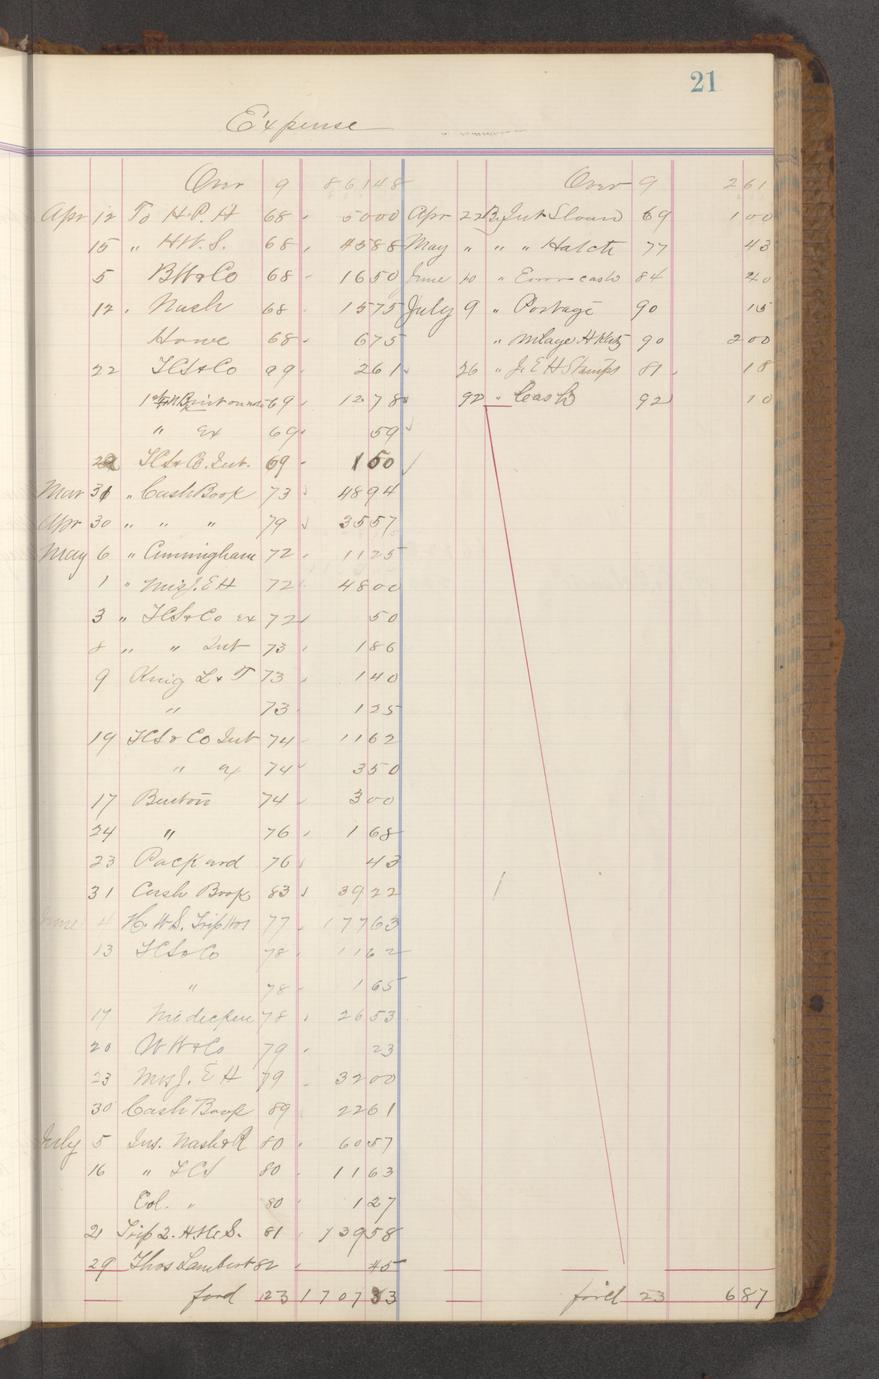 21
Expense
Over 9 86148
Apr 12 To H.P.H 68 5000
15 " H.W.S. 68 4588
5 BW&Co 68 1650
12 " Nash 68 1575
Howe 68 675
22 TCS&Co 261
69 1278
" Ex 69 59
TCS&Co. Int. 69 150
Mar 31 " Cash Book 73 4894
Apr 30 " " " 79 3557
May 6 " Cunningham 72 1125
1 " J. E H 72 4800
3 " TCS&Co Ex 72 50
8 " " Int 73 186
9 L & T 73 140
" 73 125
19 TCS&Co Int 74 1162
" Ex 74 350
17 Burton 74 300
24 " 76 168
23 Packard 76 43
31 Cash Book 83 3922
June 4 H.W.S. Trip 77 17763
13 TCS&Co 78 1162
" 78 165
17 78 2653
20 W W & Co 79 23
23 J. E H 79 3200
30 Cash Book 89 2261
July 5 Ins. Nash & R 80 6057
16 " TCS 80 1163
Col. " 80 127
21 Trip 2. 81 13958
29 Thos Lambert 82 45
ford 23 170783
Over 9 261
Apr 22 By Int Sloan 69 100
May " " " Hatch 77 43
June 10 " Error cash 84 20
July 9 " Postage 90 15
" Milage H 90 200
26 " J. E H Stamps 81 18
92 " Cash 92 10
for'd 23 687